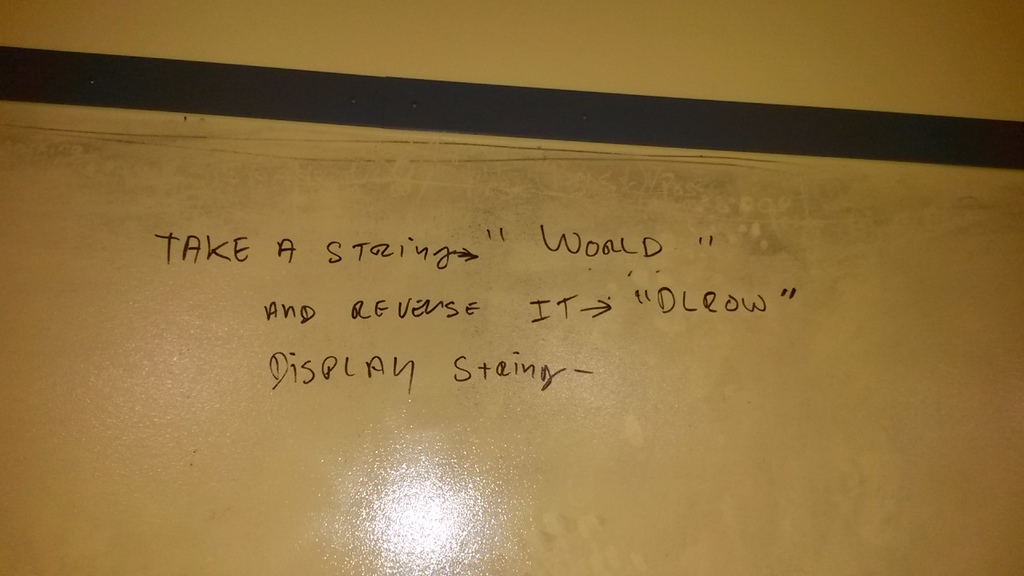 TAKE A STRING→ " WORLD "
AND REVERSE IT→ "DLROW"
DISPLAY STRING—